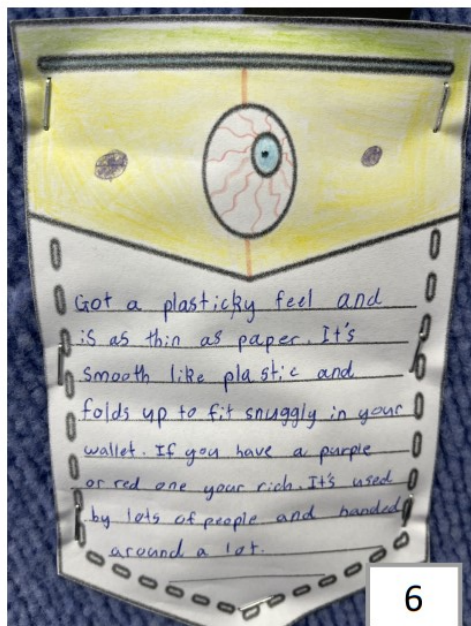 Got a plasticky feel and
is as thin as paper. It's
smooth like plastic and
folds up to fit snuggly in your
wallet. If you have a purple
or red one your rich. It's used
by lots of people and handed
around a lot.
6